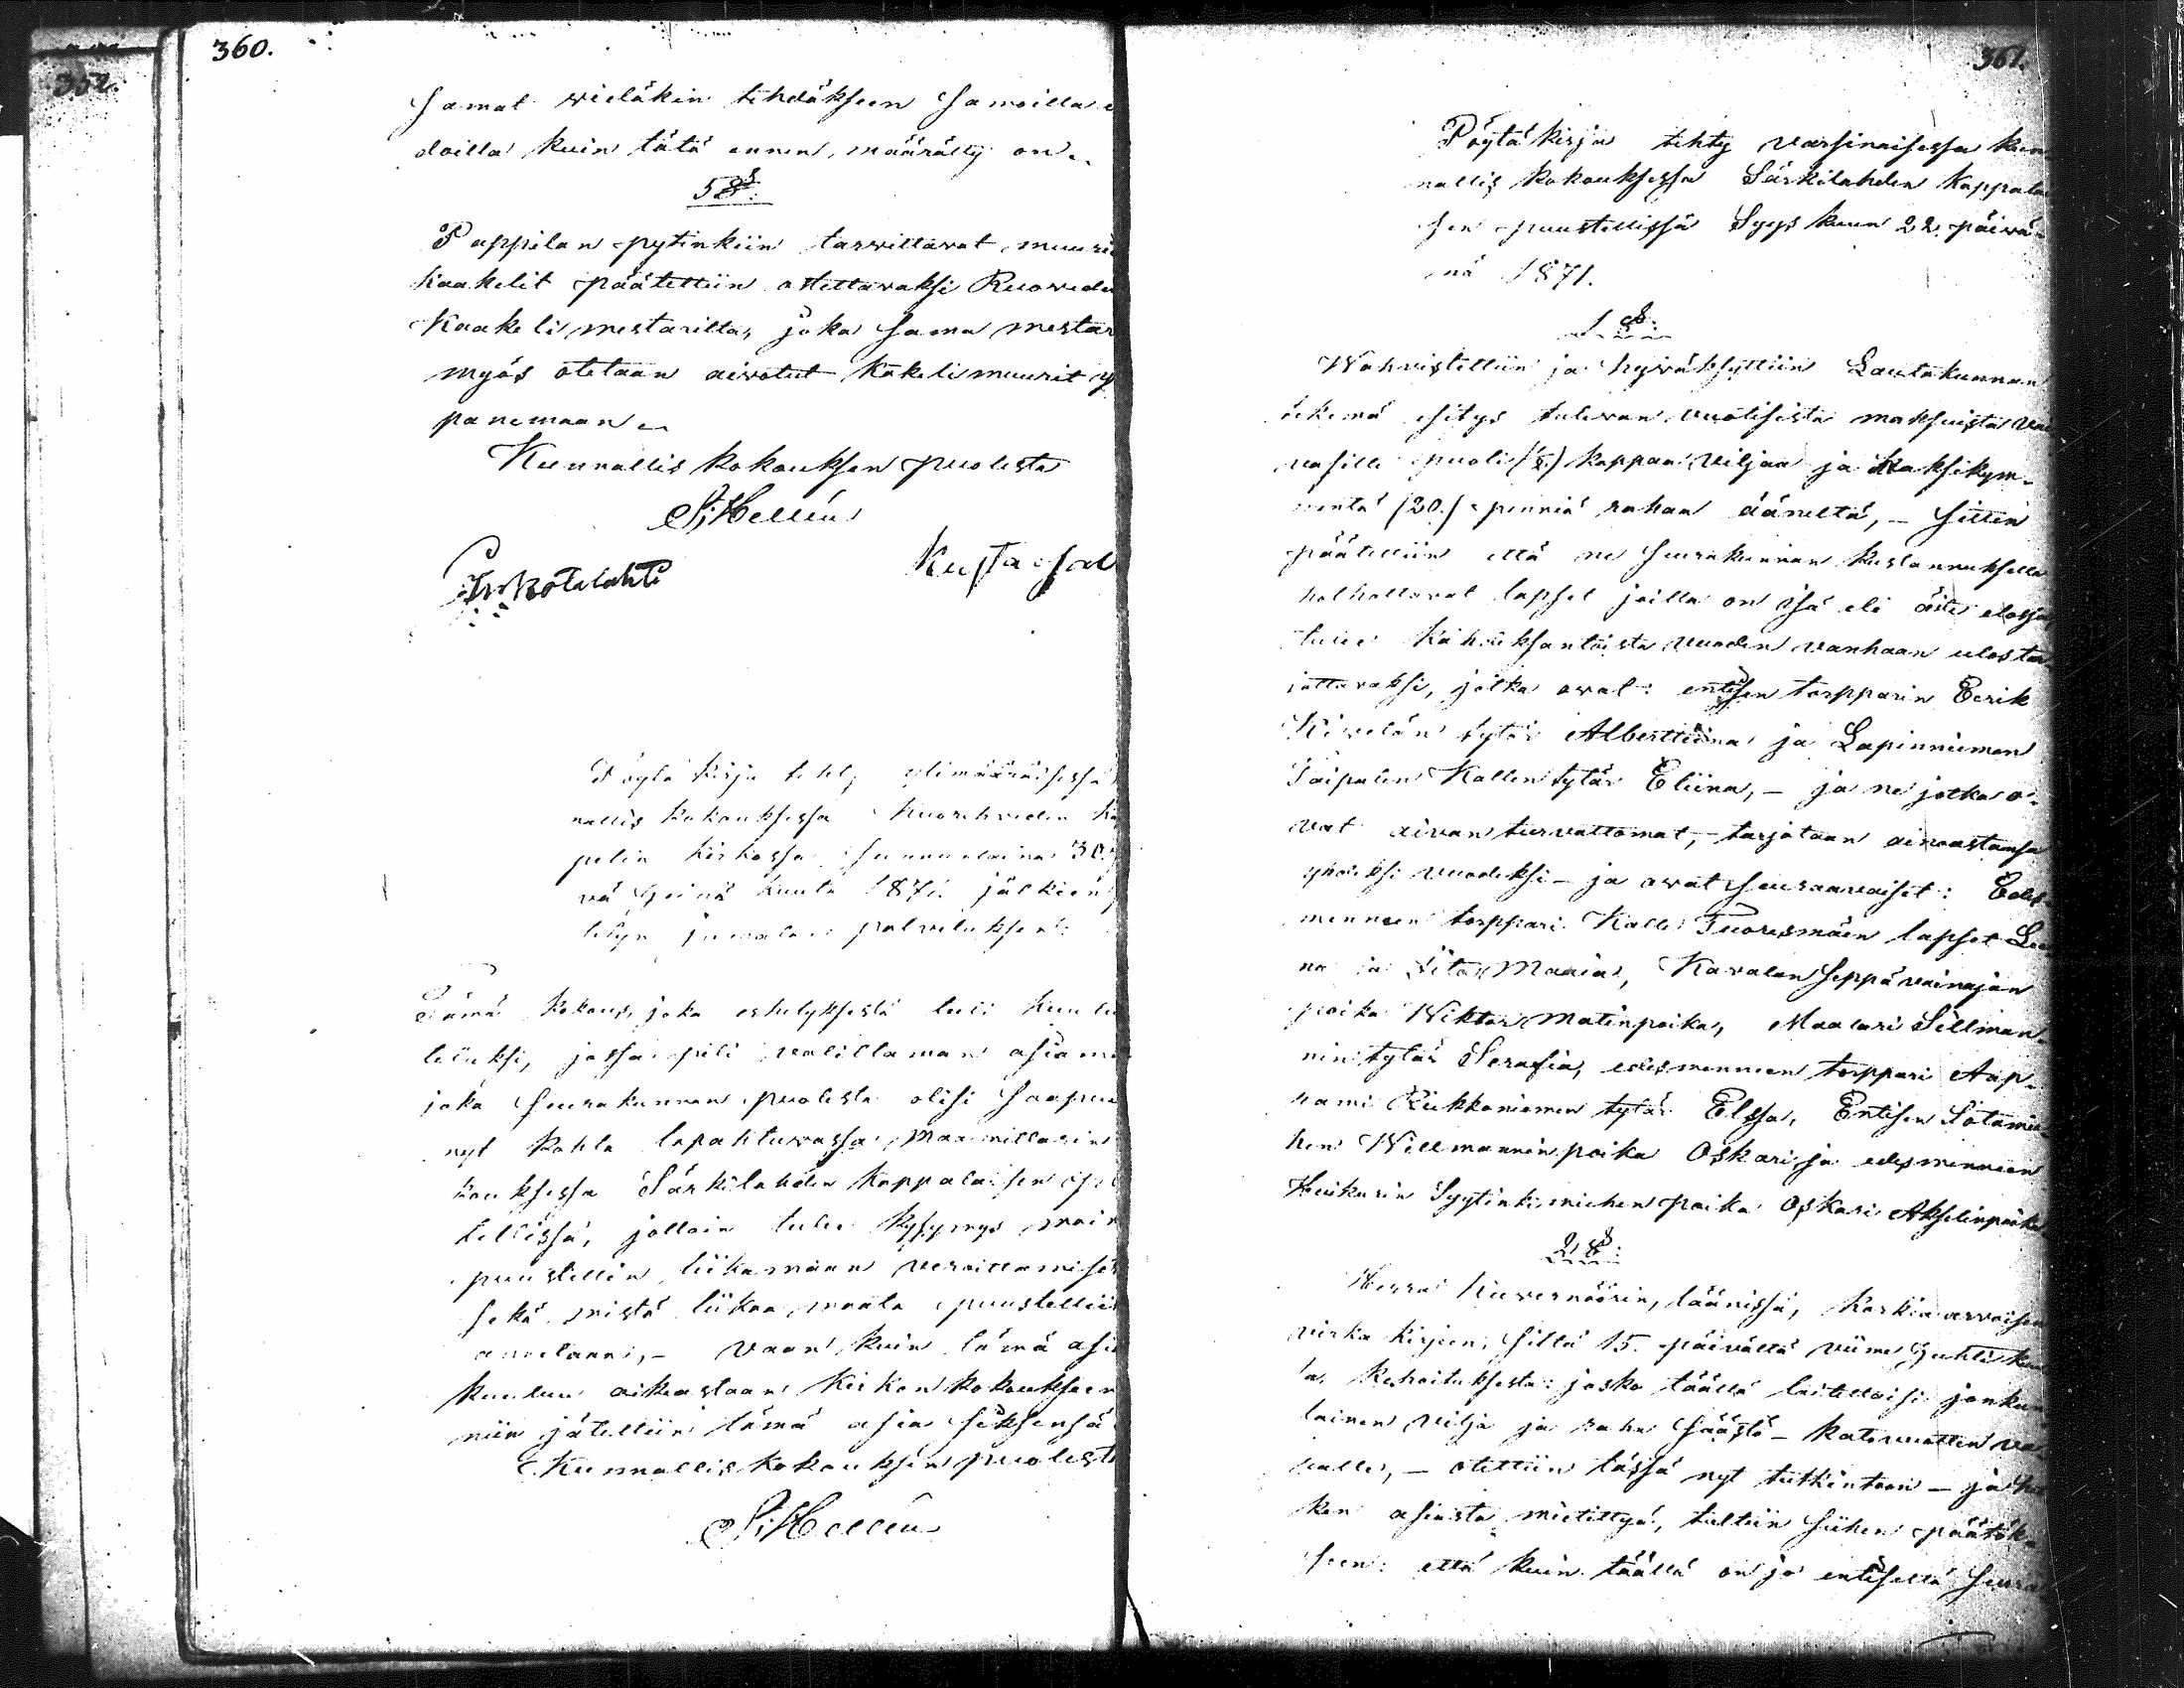 360.
352.
samat vieläkin tehdäkseen samoilla
doilla kuin tätä ennen, määrätty on.
5 §:
Pappilan pytinkiin tarvittavat muuri
kaakelit päätettiin otettavaksi Ruoveden
Kaakelimestarilta, joka sama mestar
myös otetaan aivotut kakelimuurit y
panemaan.
Kunnallis kokouksen puolesta
Kusta
Pöytäkirja tehty ylimääräisessä
nallis kokouksessa Kuorehveden
pelin kirkossa sunnuntaina 30.
nä Heinä kuuta 1871. jälkeen
jumalan palveluksen:
Tämä kokous, joka esityksestä tuli kuulu
tetuksi, jossa piti valittaman asiami
joka Seurakunnan puolesta olisi saapu
nyt kohta tapahtuvassa maamittarin
kouksessa Särkilahden kappalaisen
tellissä, jolloin tulee kysymys
puustellin liikamaan verottamises
sekä mistä liikaa maata puustelliin
annetaan,- vaan kuin tämä asia
kuuluu oikeastaan Kirkon kokoukseen
niin jätettiin tämä asia siksensä
Kunnallis kokouksen puolesta
361.
Pöytäkirja tehty varsinaisessa kun
nallis kokouksessa Särkilahden Kappalai
sen puustellissa Syys kuun 22. päivä-
nä 1871.
1 §:
Wahvistettiin ja hyväksyttiin Lautakunnan
tekemä esitys tulevan vuotisista maksuista
vasille puoli (½) kappaa viljaa ja kaksikym-
mentä (20.) penniä rahaa ääneltä,- Sitten
päätettiin että ne Seurakunnan kustannuksella
holhottavat lapset joilla on isä eli äiti elossa
tulee kahdeksantoista vuoden vanhaan ulosta
jottavaksi, jotka ovat: entisen torpparin Eerik
Kivelän tytär Alberttiina ja Lapinniemen
Taipaleen Kallen tytär Eliina,- ja ne jotka o-
vat aivan turvattomat,- tarjotaan ainoastansa
yhdeksi vuodeksi - ja ovat seuraavaiset: Edes
menneen torppari Kalle Tuoresmäen lapset Lee
na ja Maria, Kavalan Seppävainajan
poika Wiktor Matinpoika, Maalari Sillman-
nin tytär Serafia, edesmenneen torppari Aap-
rami Rukkoniemen tytär Elssa, Entisen Sotamie
hen Willmannin poika Oskari ja edesmenneen
Syytinkimiehen poika Oskari Akselinpoika
2 §:
Herra Kuvernöörin, läänissä, korkia arvoisen
virka kirjeen, sillä 15. päivällä viime Huhtikuu
ta, kehoituksesta: josko täällä laitettaisi jonkun
lainen vilja ja raha säästö - katovuotten va-
ralle,- otettiin tässä nyt tutkintoon - ja
ken asiasta mietittyä, tultiin siihen päätök-
seen: että kuin täällä on jo entisellä Seura